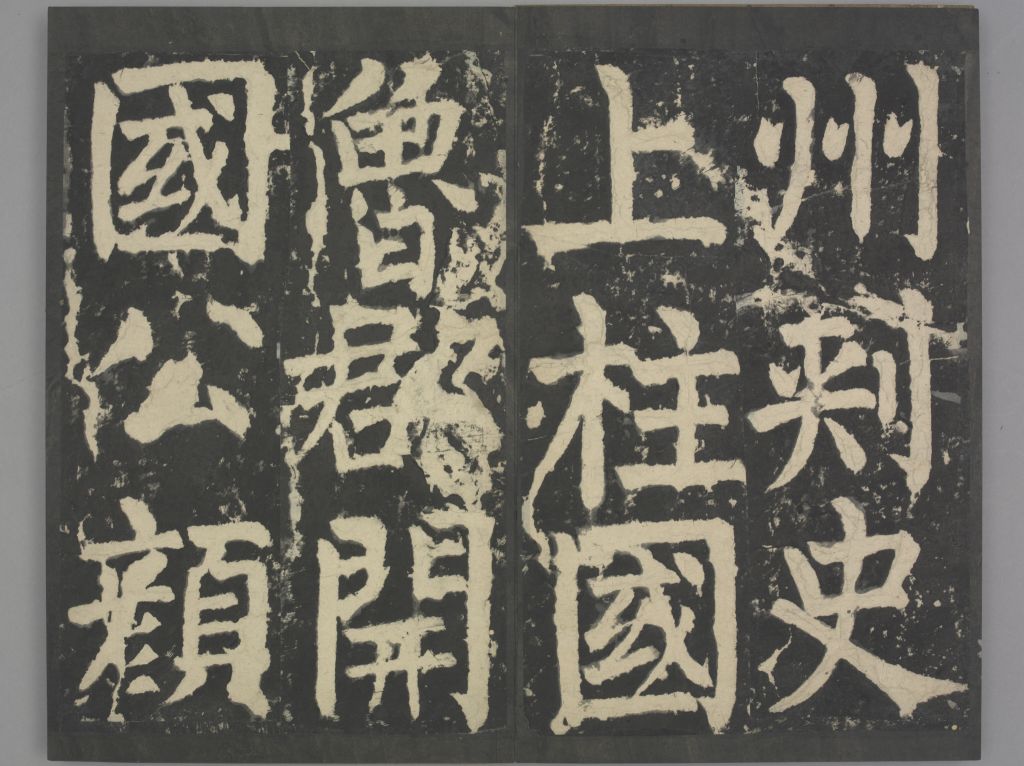 州刺史
上柱國
魯郡開
國公顏